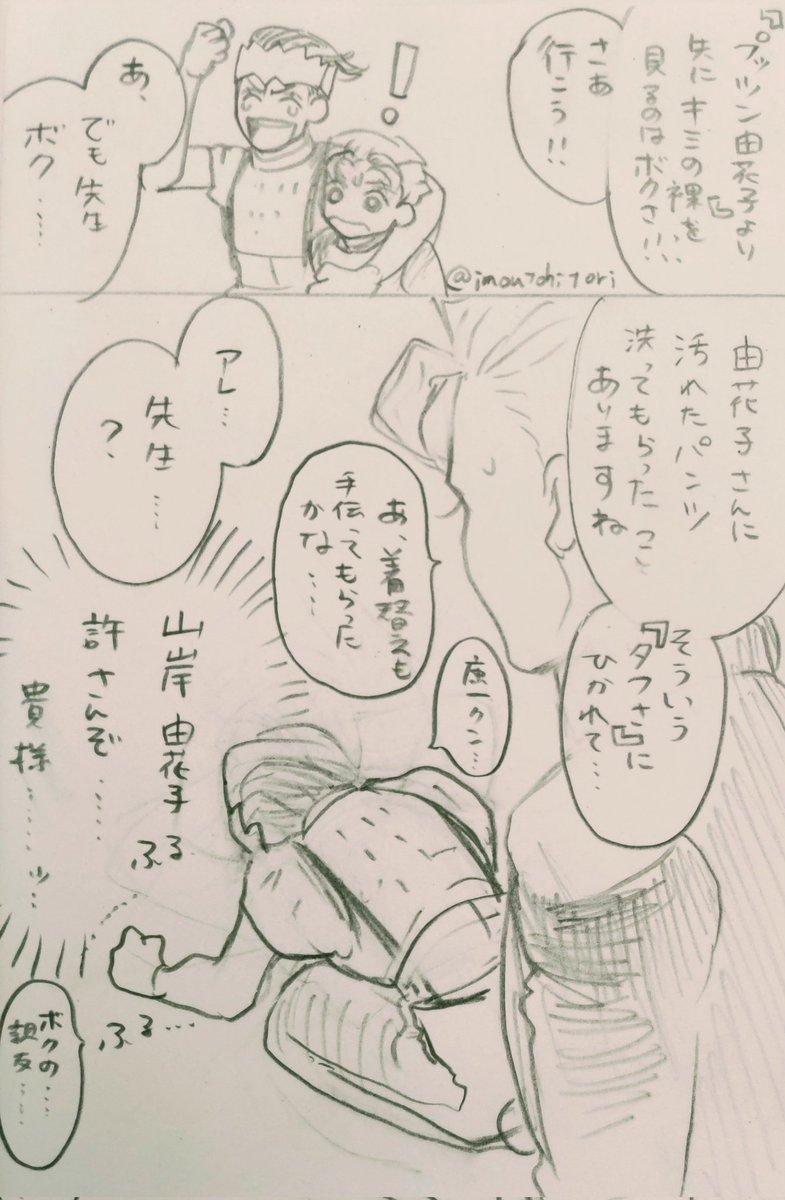 『プッツン由花子より
先にキミの裸を
見るのはボクさ!!!』
さあ
行こう!!
!
あ、
でも先生
ボク……
@imou7ohi7ori
由花子さんに
汚れたパンツ
洗ってもらったこと
ありますね
『そういう
タフさ』に
ひかれて…
あ、着替えも
手伝ってもらった
かな……
アレ…
先生…
?
康一クン…
山岸由花子
許さんぞ……
貴様……ッ…
ふる
ふる…
ボクの…
親友……